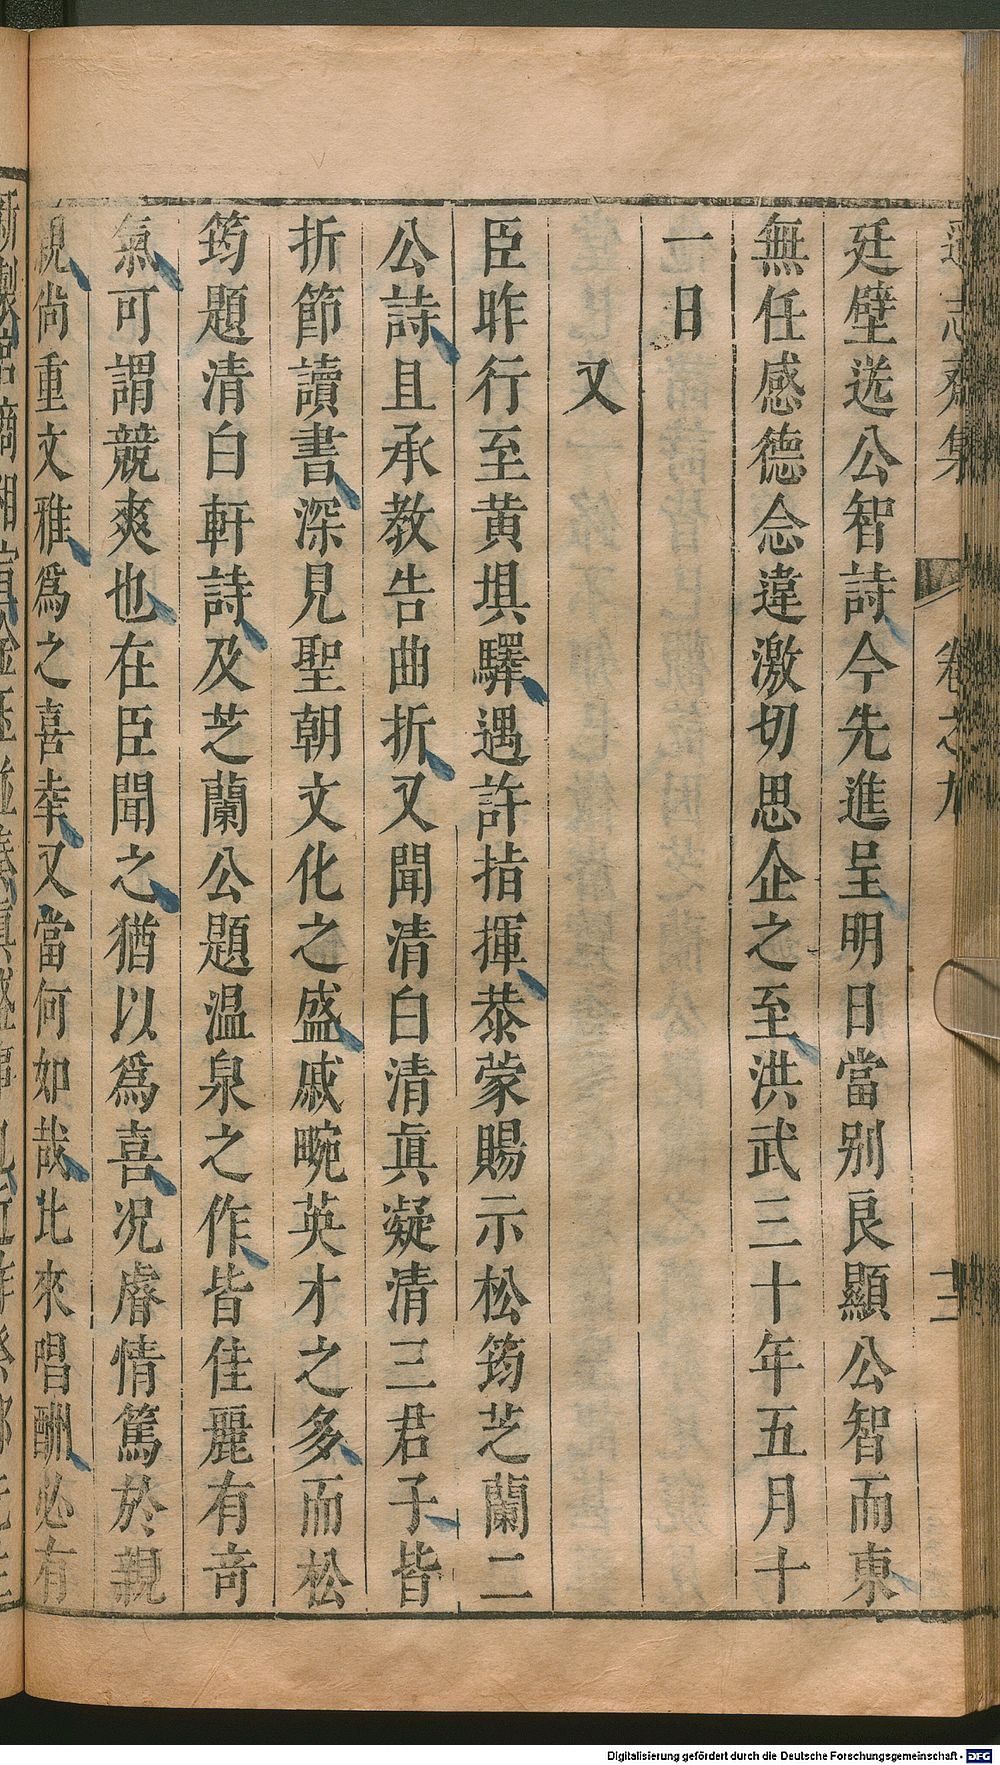 遜志齋集 卷之九 十二
廷壁送公智詩今先進呈明日當别良顯公智而東
無任感德念違激切思企之至洪武三十年五月十
一日
又
臣昨行至黄埧驛遇許指揮恭蒙賜示松筠芝蘭二
公詩且承教告曲折又聞清白清眞凝清三君子皆
折節讀書深見聖朝文化之盛戚畹英才之多而松
筠題清白軒詩及芝蘭公題温泉之作皆佳麗有奇
氣可謂競爽也在臣聞之猶以爲喜况睿情篤於親
親尚重文雅爲之喜幸又當何如哉比來唱酬必有
Digitalisierung gefördert durch die Deutsche Forschungsgemeinschaft - DFG